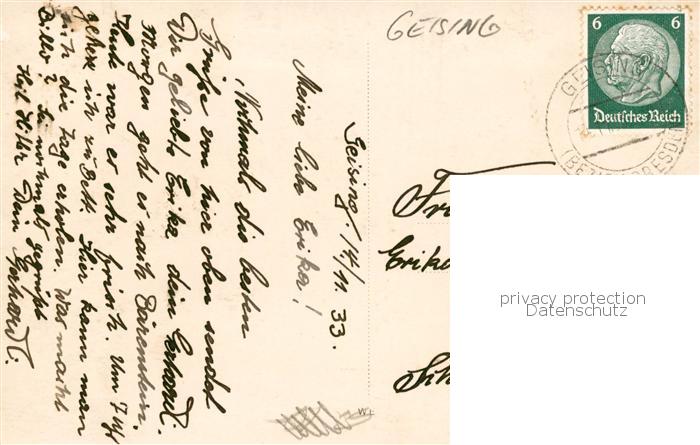 GEISING
6 6
Deutsches Reich
GEISING
(BEZ. DRESDEN)
Geising, 14/11 33.
Meine liebe Erika!
Nochmals die besten
Grüße von hier oben sendet
Dir geliebte Erika dein Gerhardt.
Morgen geht es nach Bärenstein.
Heute war es sehr frisch. Um 7 Uhr
gehe ich zu Bett. Hier kann man
sich die Tage erholen. Was macht
nochmals gegrüßt
Heil Hitler Dein Gerhardt.
Erika
W.L
privacy protection
Datenschutz